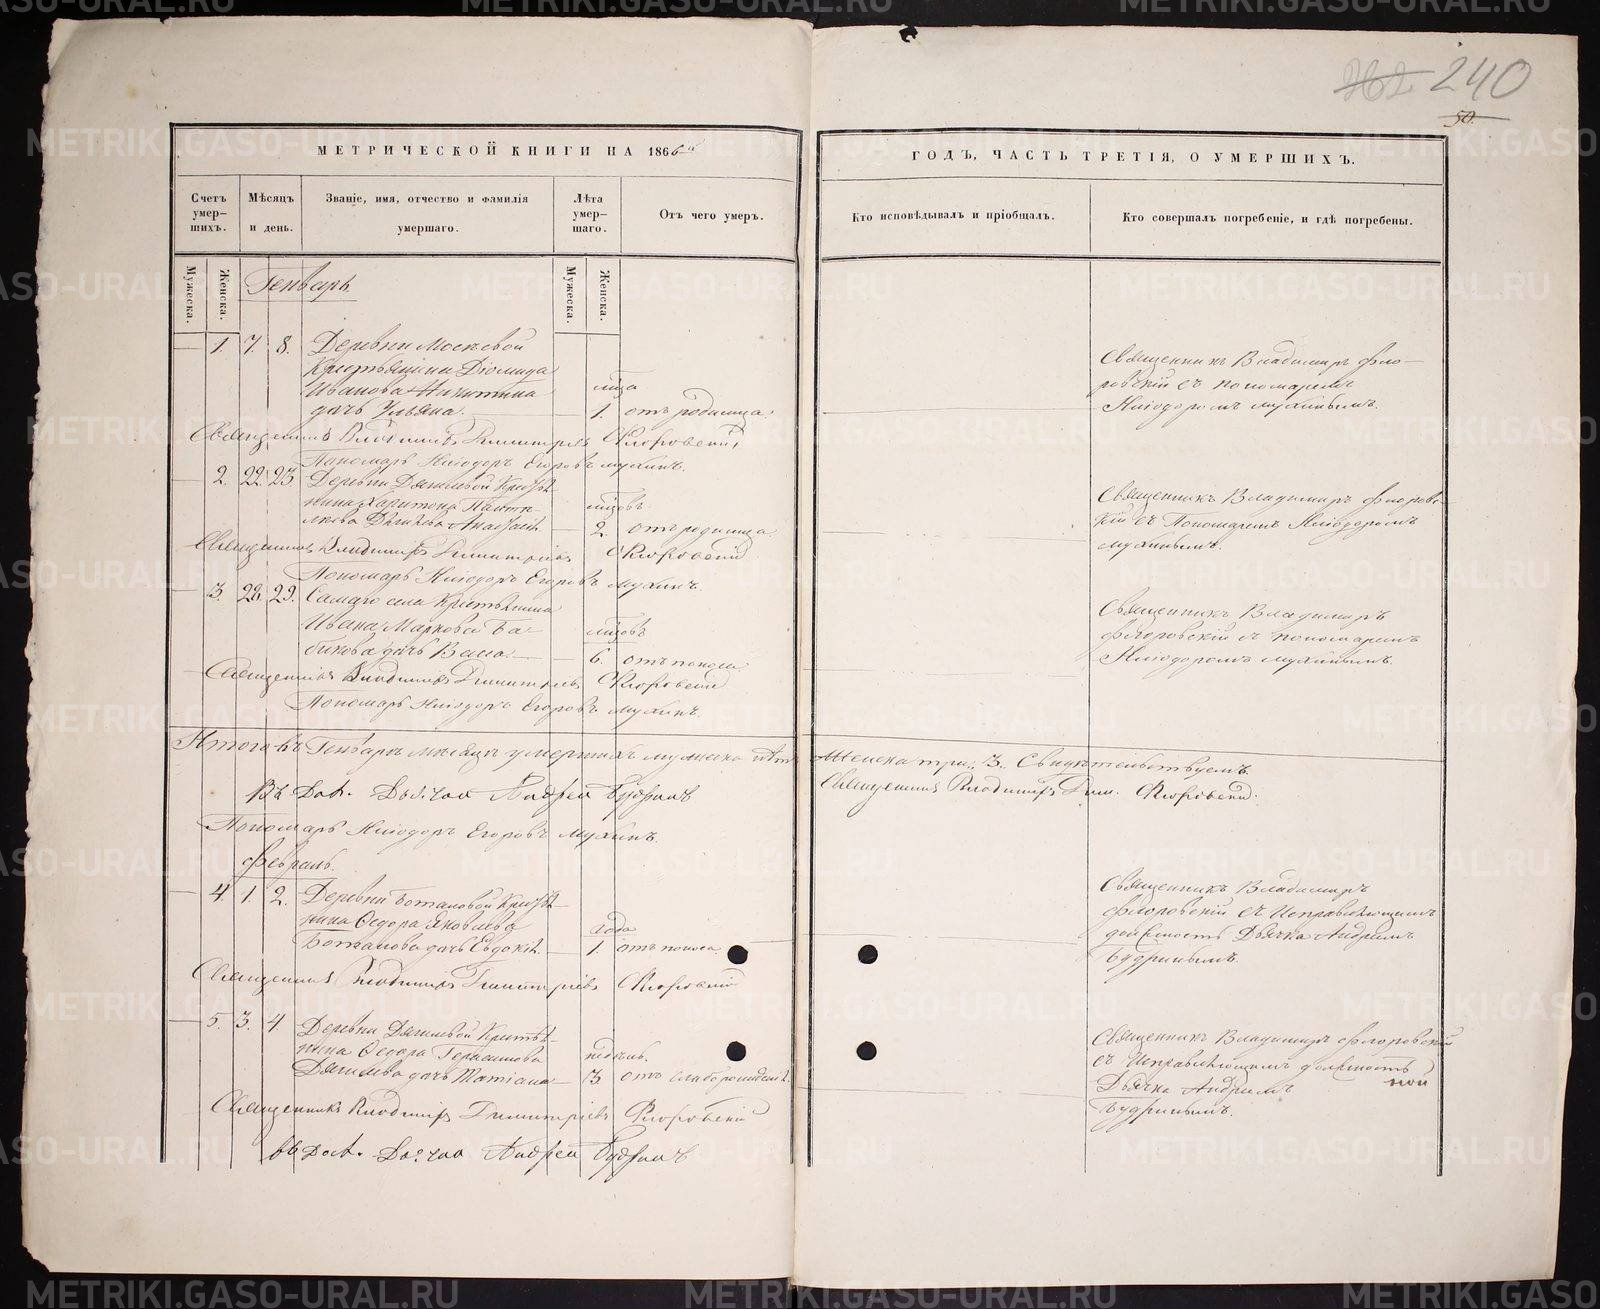 240
50.
МЕТРИЧЕСКОЙ КНИГИ НА 1866й
ГОДЪ, ЧАСТЬ ТРЕТІЯ, О УМЕРШИХЪ.
Счетъ умер-
шихъ.
Мѣсяцъ
и день.
Званіе, имя, отчество и фамилія
умершаго.
Лѣта
умер-
шаго.
Отъ чего умеръ.
Кто исповѣдывалъ и пріобщалъ.
Кто совершалъ погребеніе, и гдѣ погребены.
Мужеска.
Женска.
Мужеска.
Женска.
Генварь
1. 7. 8. Деревни Москвой
Крестьянина Діомида
Иванова Никитина
дочь Ульяна.
1. отъ родимца.
Священникъ Владимиръ Фло-
ровскій съ пономаремъ
Ниодоромъ Мухинымъ.
Священникъ Владимиръ Димитріевъ Флоровскій
Пономарь Ниодоръ Егоровъ Мухинъ.
2. 22. 23. Деревни
2. отъ родимца
Священникъ Владимиръ Флоровс-
кій съ Пономаремъ Ниодоромъ
Мухинымъ.
Священникъ Владимиръ Димитріевъ Флоровскій
Пономарь Ниодоръ Егоровъ Мухинъ.
3. 28. 29. Самаго села Крестьянина
Ивана Маркова Ба-
бикова дочь
6. отъ поноса
Священникъ Владимиръ
Флоровскій съ пономаремъ
Ниодоромъ Мухинымъ.
Священникъ Владимиръ Димитріевъ Флоровскій
Пономарь Ниодоръ Егоровъ Мухинъ.
Итого въ Генварѣ мѣсяцѣ умершихъ мужеска нѣтъ женска три, 3. Свидѣтельствуемъ
Священникъ Владимиръ Дим. Флоровскій.
Въ Дол. Дьячка Андрей Будринъ
Пономарь Ниодоръ Егоровъ Мухинъ.
Февраль.
4. 1. 2. Деревни Боталовой Крестья-
нина Ѳедора Яковлева
Боталова дочь Евдокія.
года
1. отъ поноса
Священникъ Владимиръ
Флоровскій съ Исправляющимъ
должность Дьячка Андреемъ
Будринымъ.
Священникъ Владимиръ Димитріевъ Флоровскій
5. 3. 4 Деревни Дягилевой Крестья-
нина Ѳедора Герасимова
Дягилева дочь Татіана
недѣль.
3 отъ слаборожденія.
Священникъ Владимиръ Флоровскій
съ Исправляющимъ должность
Дьячка Андреемъ
Будринымъ.
Священникъ Владимиръ Димитріевъ Флоровскій
въ Дол. Дьячка Андрей Будринъ
METRIKI.GASO-URAL.RU